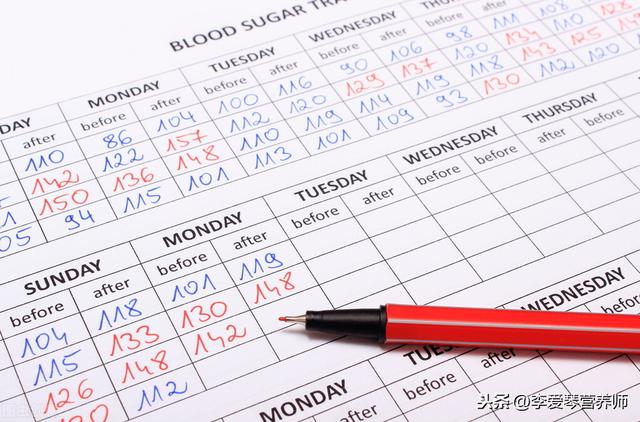 BLOOD SUGAR TRA
DAY MONDAY TUESDAY WEDNESDAY THU
after before after before after before after before after
110 86 104 100 116 90 106 98 111 108
142 122 157 112 120 129 137 120 134 110 128
150 136 148 110 119 114 119 118 143 125
05 94 115 101 113 101 109 93 130 112 120
SUNDAY MONDAY TUESDAY WEDNESDAY THURSDAY
before after before after before after before before before
104 118 101 119
115 133 130 148
126 148 142
112
MONDAY TUES WEDNESDAY
after before after before
头条 @李爱琴营养师